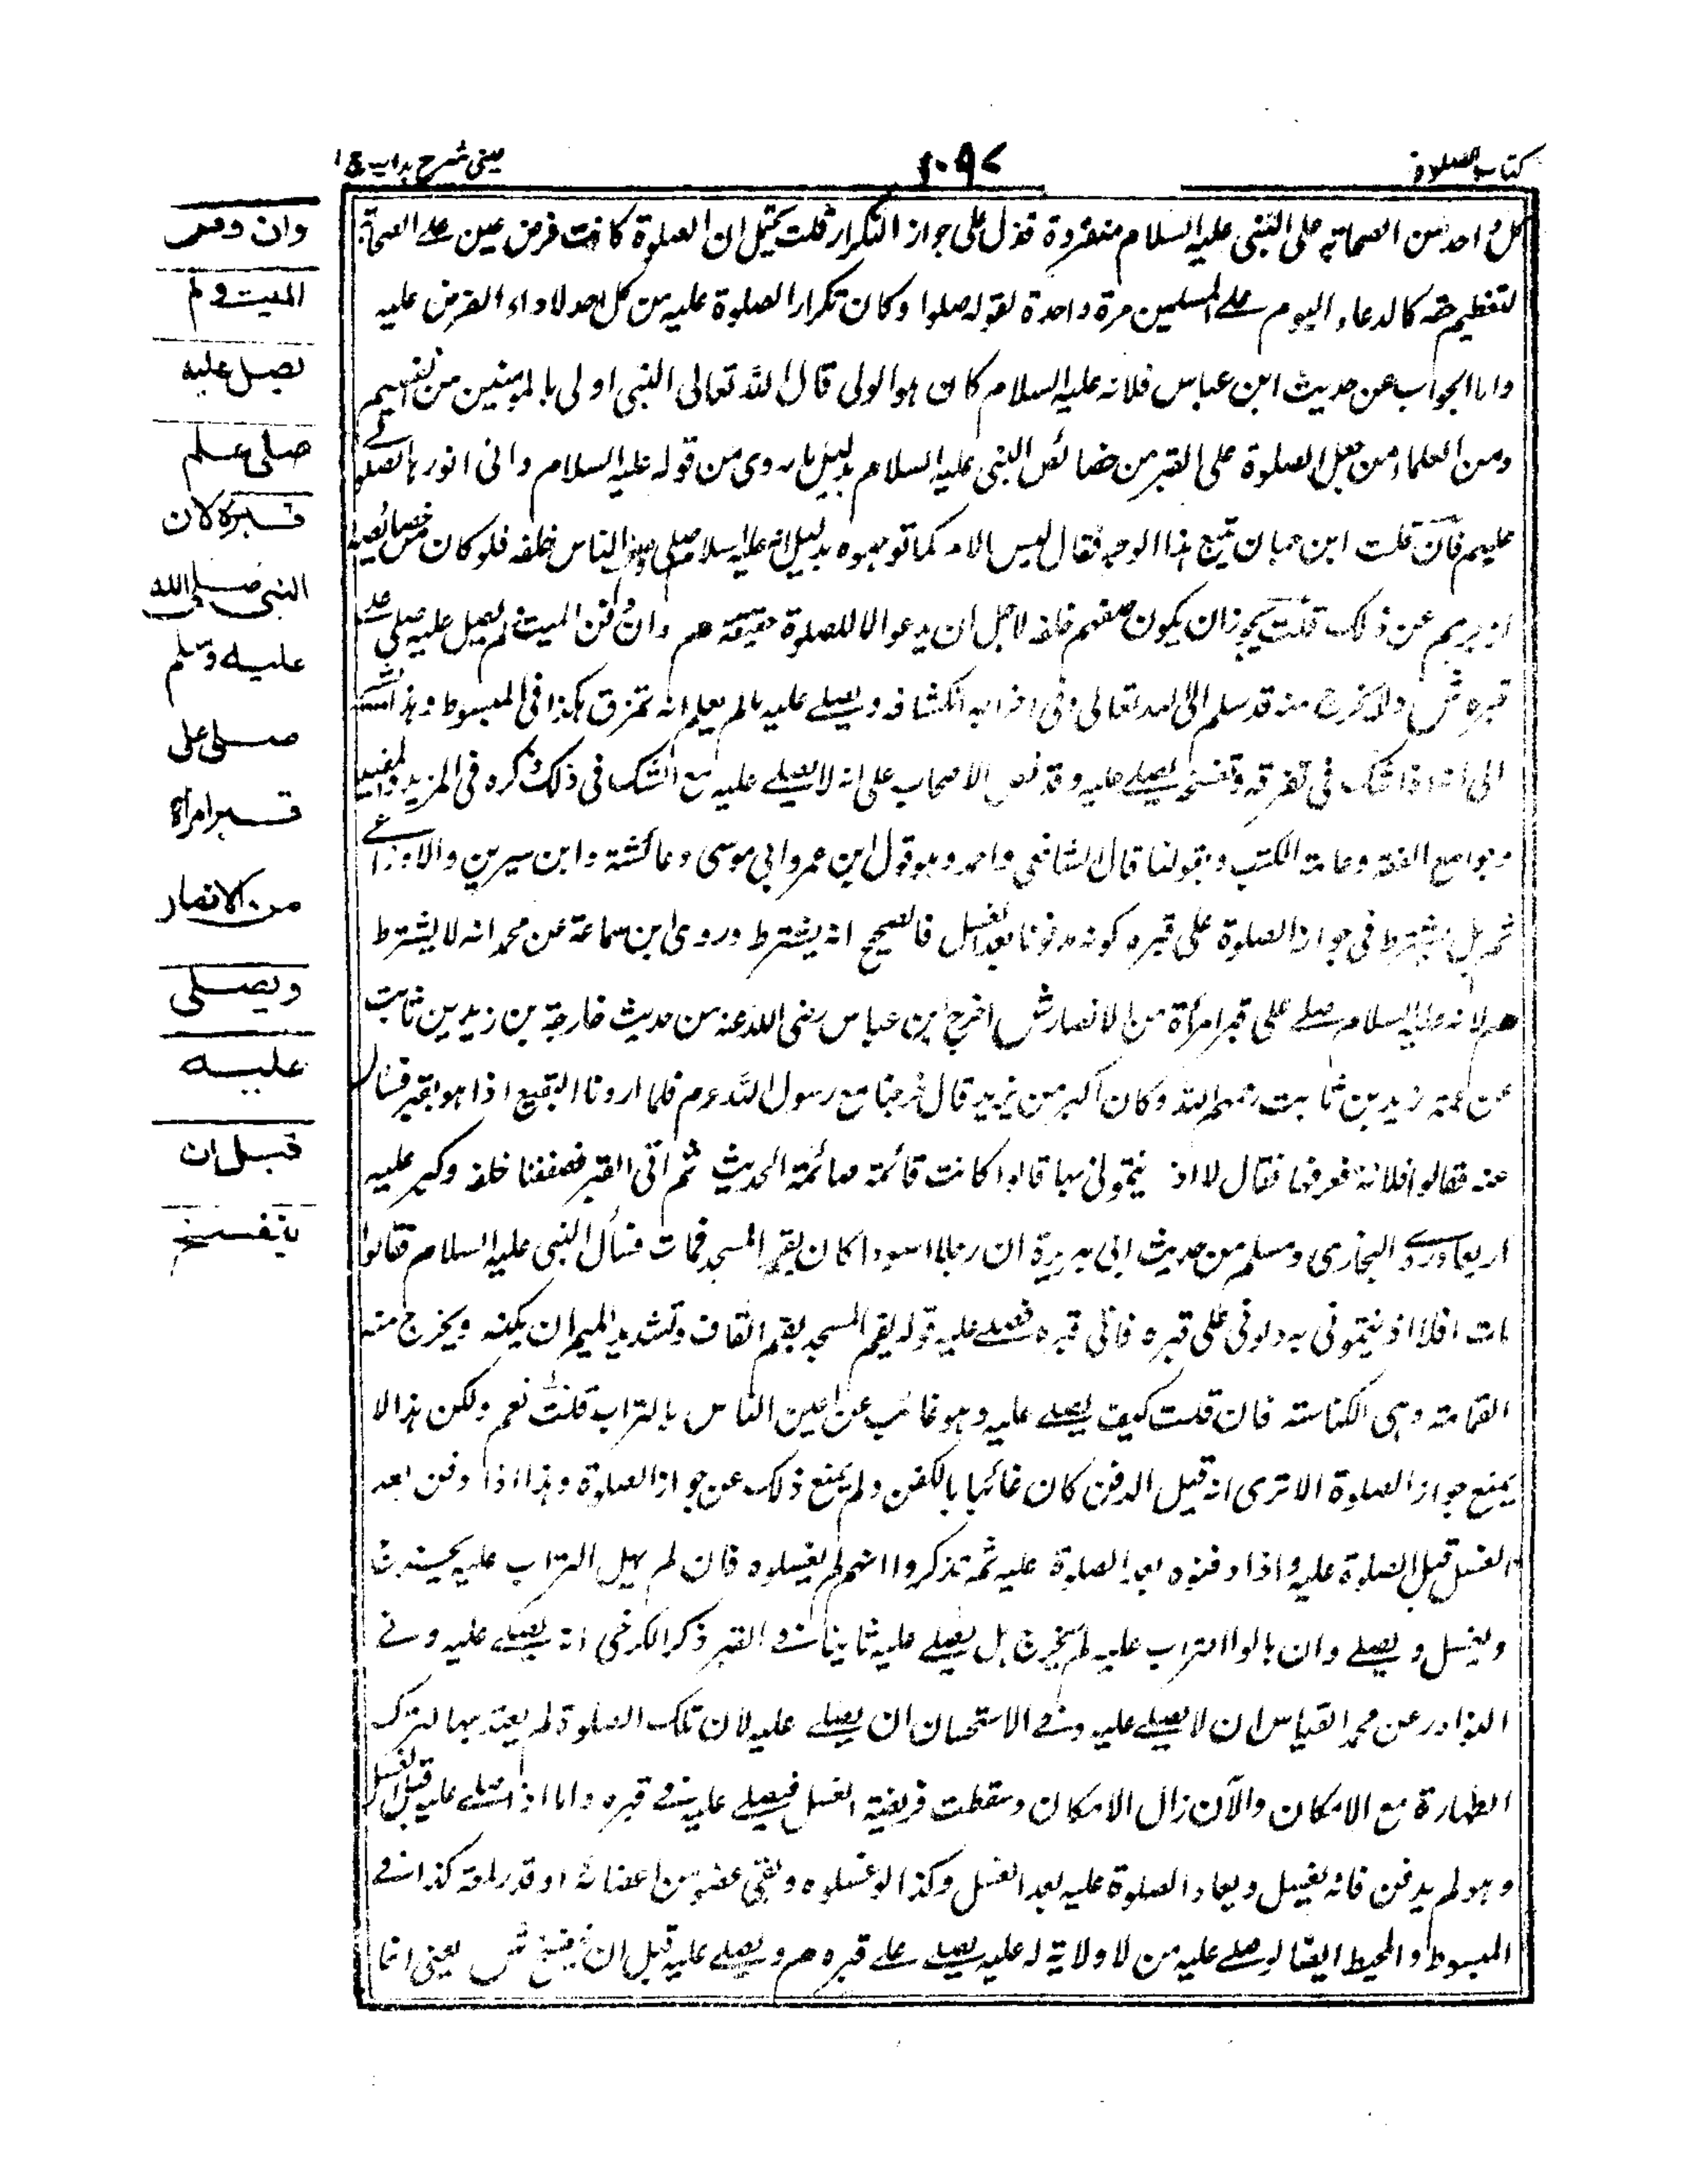 كتاب الصلوة
١٠٩٧
عينى شرح هدايه ج ١
كل واحد من الصحابة على النبى عليه السلام منفردة فدل على جواز التكرار قلت يحتمل ان الصلوة كانت فرض عين على الصحابة
لتعظيم حقه كالدعاء اليوم على المسلمين مرة واحدة لقوله صلوا وكان تكرار الصلوة عليه من كل احد لاداء الفرض عليه
واما الجواب عن حديث ابن عباس فلانه عليه السلام كان هو الولى قال الله تعالى النبى اولى بالمومنين من انفسهم
ومن العلماء من جعل الصلوة على القبر من خصائص النبى عليه السلام بدليل ما روى من قوله عليه السلام وانى انورها بالصلوتى
عليهم فان قلت ابن حبان منع هذا الوجه فقال ليس الامر كما توهموه بدليل انه عليه السلام صلى والناس خلفه فلو كان من خصائصه
لزجرهم عن ذلك قلت يجوز ان يكون صفهم خلفه لاجل ان يدعوا لا للصلوة حقيقة هم وان دفن الميت ولم يصل عليه صلى على
قبره ش ولا يخرج منه قد سلم الى الله تعالى وفى اخراجه انكشافه ويصلى عليه ما لم يعلم انه تمزق هكذا فى المبسوط وهذا
الى انه اذا شك فى تفرقه وتفسخه يصلى عليه وقد نص الاصحاب على انه لا يصلى عليه مع الشك فى ذلك ذكره فى المزيد والمفيد
وجوامع الفقه وعامة الكتب وبقولنا قال الشافعى واحمد وهو قول ابن عمر وابى موسى وعائشة وابن سيرين والاوزاعى
ثم هل يشترط فى جواز الصلوة على قبره كونه مدفونا بعد الغسل فالصحيح انه يشترط وروى ابن سماعة عن محمد انه لا يشترط
هم لانه عليه السلام صلى على قبر امرأة من الانصار ش اخرج ابن عباس رضى الله عنه من حديث خارجة بن زيد بن ثابت
عن عمه زيد بن ثابت رضهم الله وكان اكبر من يزيد قال خرجنا مع رسول الله عم فلما اردنا البقيع اذا هو بقبر فسأل
عنه فقالوا فلانة فعرفها فقال لا اذنيتمونى بها قالوا كانت قائمة صائمة الحديث ثم اتى القبر فصففنا خلفه وكبر عليه
اربعا وروى البخارى ومسلم من حديث ابى هريرة ان رجلا اسود كان يقم المسجد فمات فسأل النبى عليه السلام فقالوا
مات افلا اذنيتمونى به دلونى على قبره فاتى قبره فصلى عليه قوله يقم المسجد بضم القاف وتشديد الميم ان يكنه ويخرج منه
القمامة وهى الكناسته فان قلت كيف يصلى عليه وهو غائب عن اعين الناس بالتراب قلت نعم ولكن هذا لا
يمنع جواز الصلوة الا ترى انه قبل الدفن كان غائبا بالكفن ولم يمنع ذلك عن جواز الصلوة وهذا اذا دفن بعد
الغسل قبل الصلوة عليه واذا دفنوه بعد الصلوة عليه ثم تذكروا انهم لم يغسلوه فان لم يهل التراب عليه يخرج
ويغسل ويصلى وان هالوا التراب عليه لم يخرج بل يصلى عليه ثانيا فى القبر ذكر الكرخى انه يصلى عليه وفى
النوادر عن محمد القياس ان لا يصلى عليه وفى الاستحسان ان يصلى عليه لان تلك الصلوة لم يعتد بها لترك
الطهارة مع الامكان والآن زال الامكان وسقطت فريضة الغسل فيصلى عليه فى قبره واما اذا صلى عليه قبل الغسل
وهو لم يدفن فانه يغسل ويعاد الصلوة عليه بعد الغسل وكذا لو غسلوه وبقى عضو من اعضائه او قدر لمعة كذا فى
المبسوط والمحيط ايضا لو صلى عليه من لا ولاية له عليه يصلى على قبره هم ويصلى عليه قبل ان يتفسخ ش يعنى انما
وان دفن
الميت ولم
يصل عليه
صلى على
قبره لان
النبى صلى الله
عليه وسلم
صلى على
قبر امرأة
من الانصار
ويصلى
عليه
قبل ان
يتفسخ